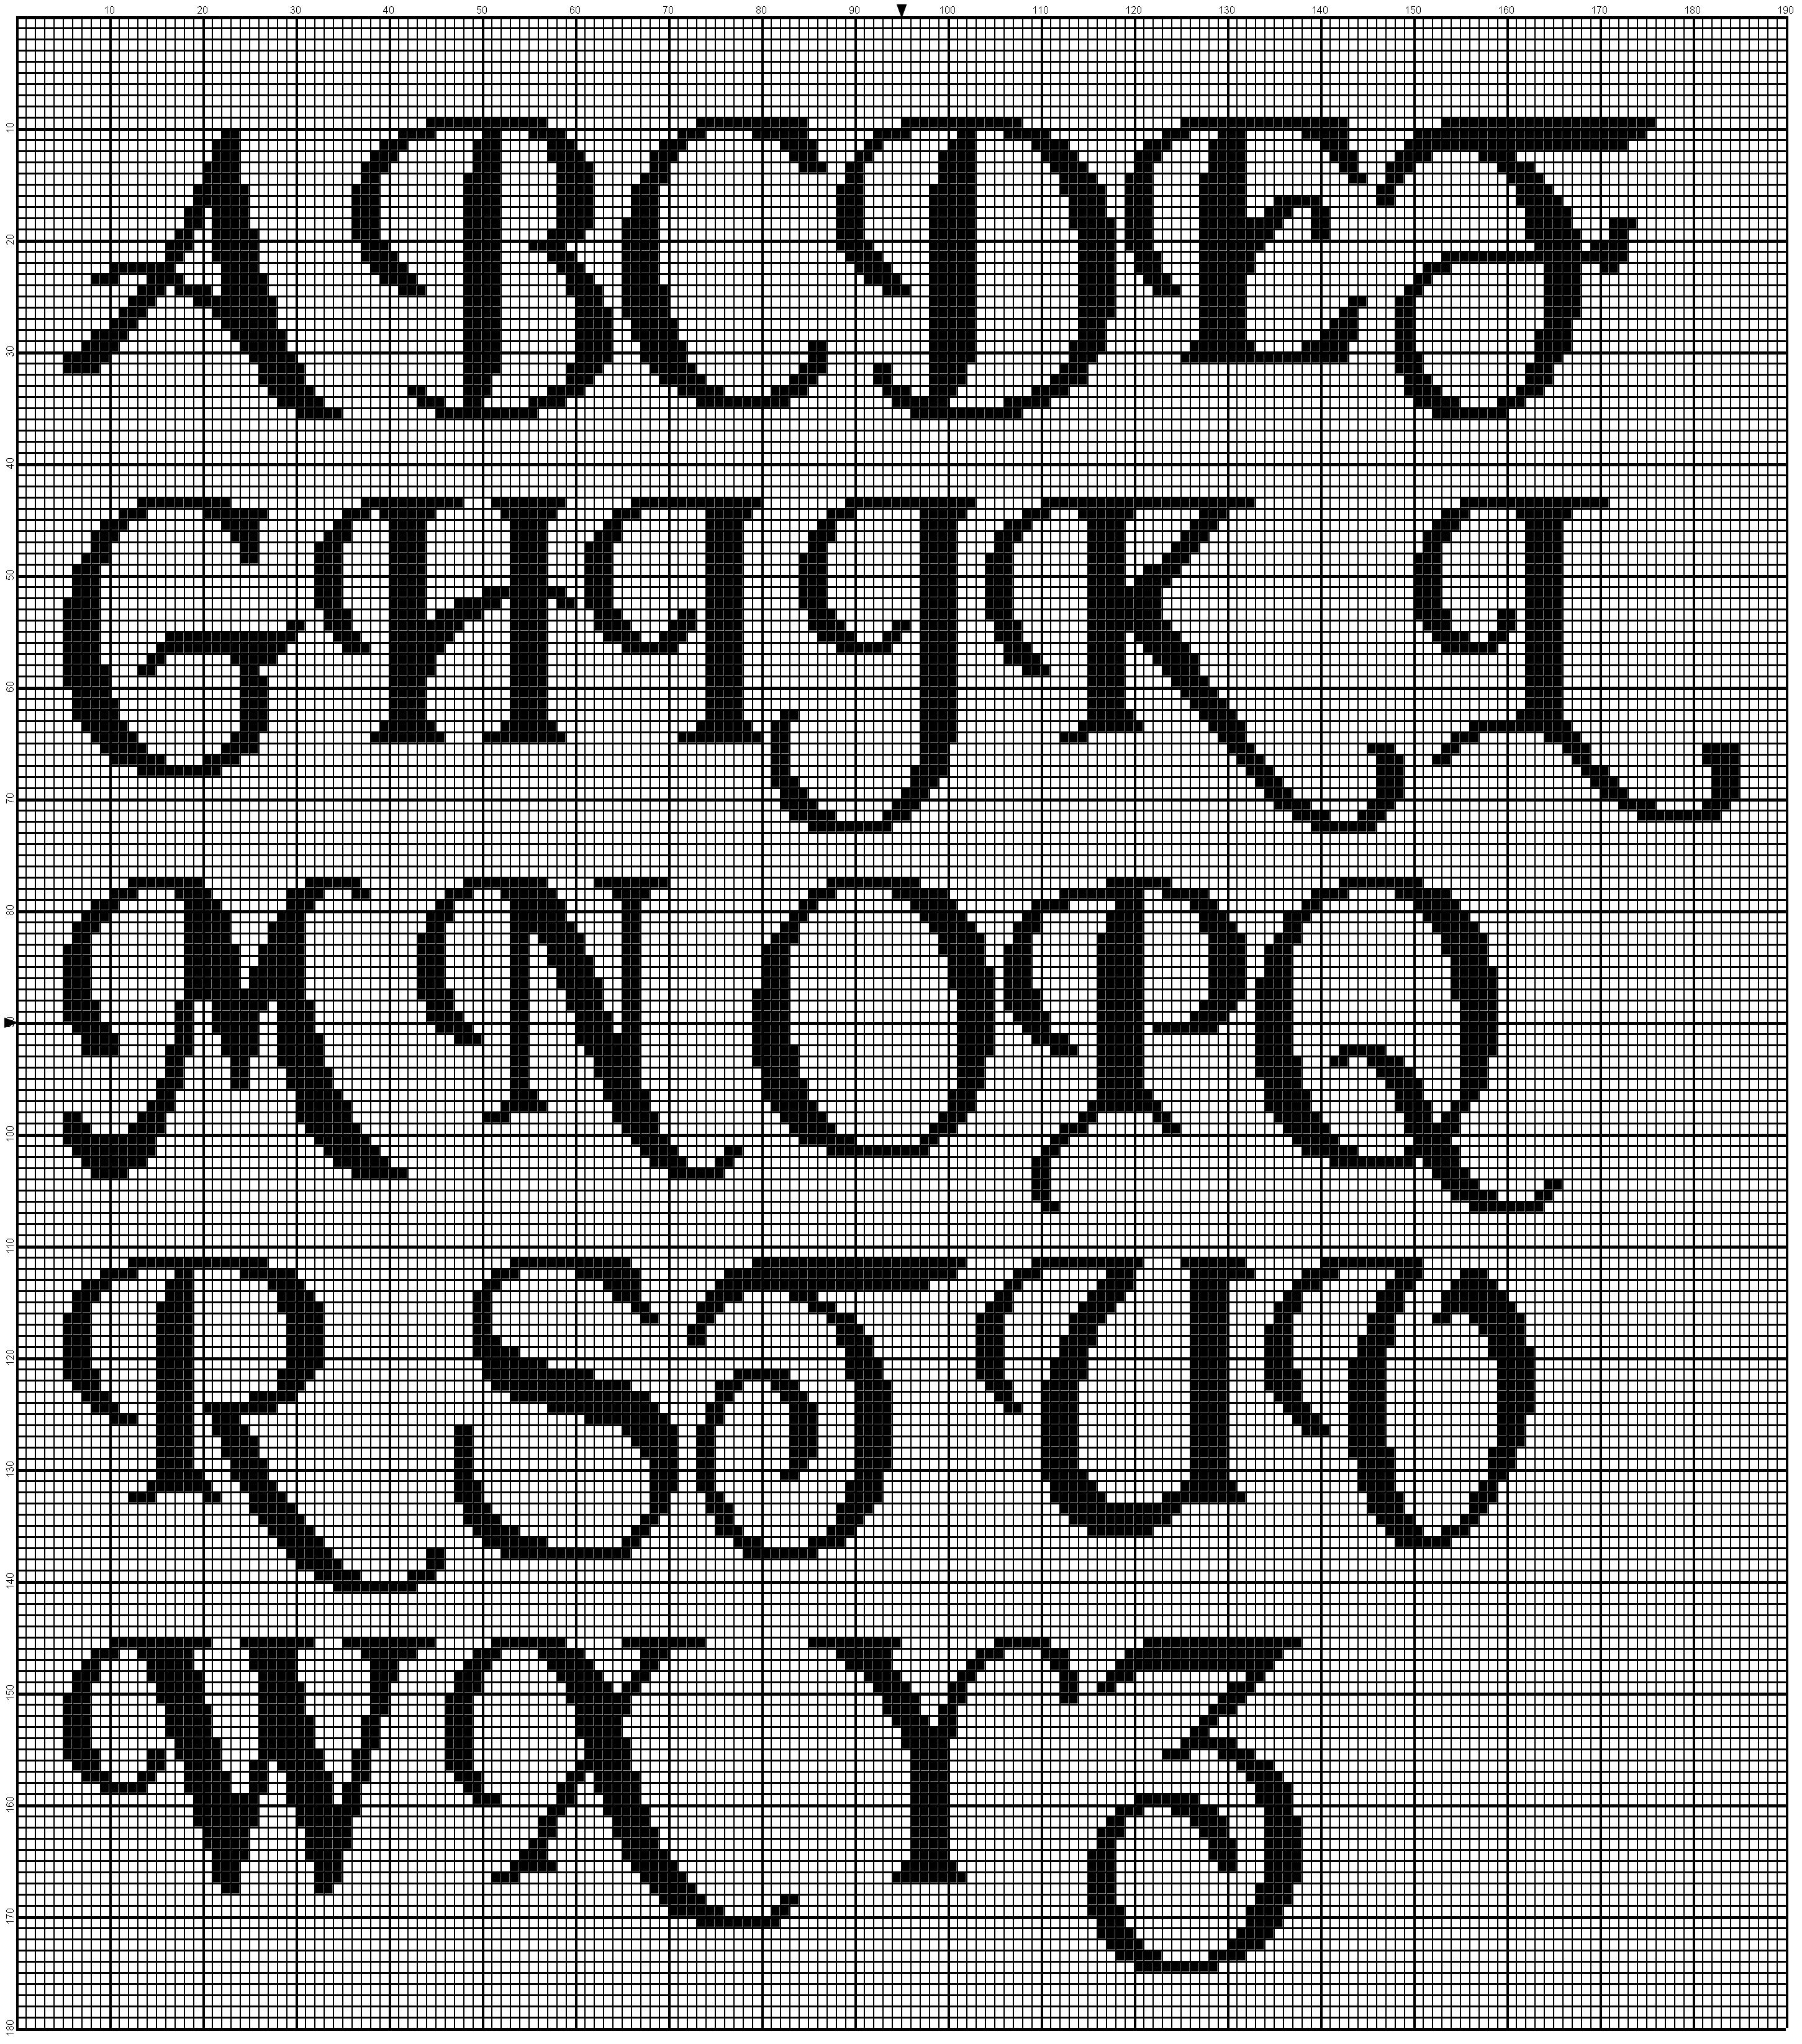 10 20 30 40 50 60 70 80 90 100 110 120 130 140 150 160 170 180 190
10
A B C D E F
20
30
40
G H I J K L
50
60
70
M N O P Q
80
90
100
110
R S T U V
120
130
140
W X Y Z
150
160
170
180